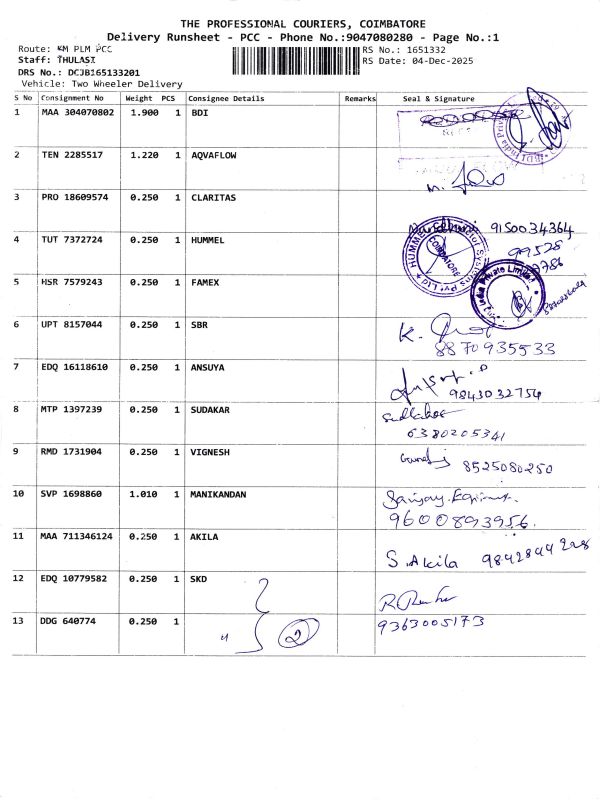 THE PROFESSIONAL COURIERS, COIMBATORE
Delivery Runsheet - PCC - Phone No.:9047080280 - Page No.:1
Route: KM PLM PCC
RS No.: 1651332
Staff: THULASI
RS Date: 04-Dec-2025
DRS No.: DCJB165133201
Vehicle: Two Wheeler Delivery
S No Consignment No Weight PCS Consignee Details Remarks Seal & Signature
1 MAA 304070802 1.900 1 BDI
2 TEN 2285517 1.220 1 AQVAFLOW
3 PRO 18609574 0.250 1 CLARITAS
9150034364
4 TUT 7372724 0.250 1 HUMMEL
HUMMEL
COIMBATORE
99528
5 HSR 7579243 0.250 1 FAMEX
India Private Limited
6 UPT 8157044 0.250 1 SBR
K.
8870935533
7 EDQ 16118610 0.250 1 ANSUYA
9843032754
8 MTP 1397239 0.250 1 SUDAKAR
Sudhakar
6380205341
9 RMD 1731904 0.250 1 VIGNESH
8525080250
10 SVP 1698860 1.010 1 MANIKANDAN
Sanjay.
9600893956.
11 MAA 711346124 0.250 1 AKILA
S. Akila 9842844228
12 EDQ 10779582 0.250 1 SKD
13 DDG 640774 0.250 1
" 2
9363005173